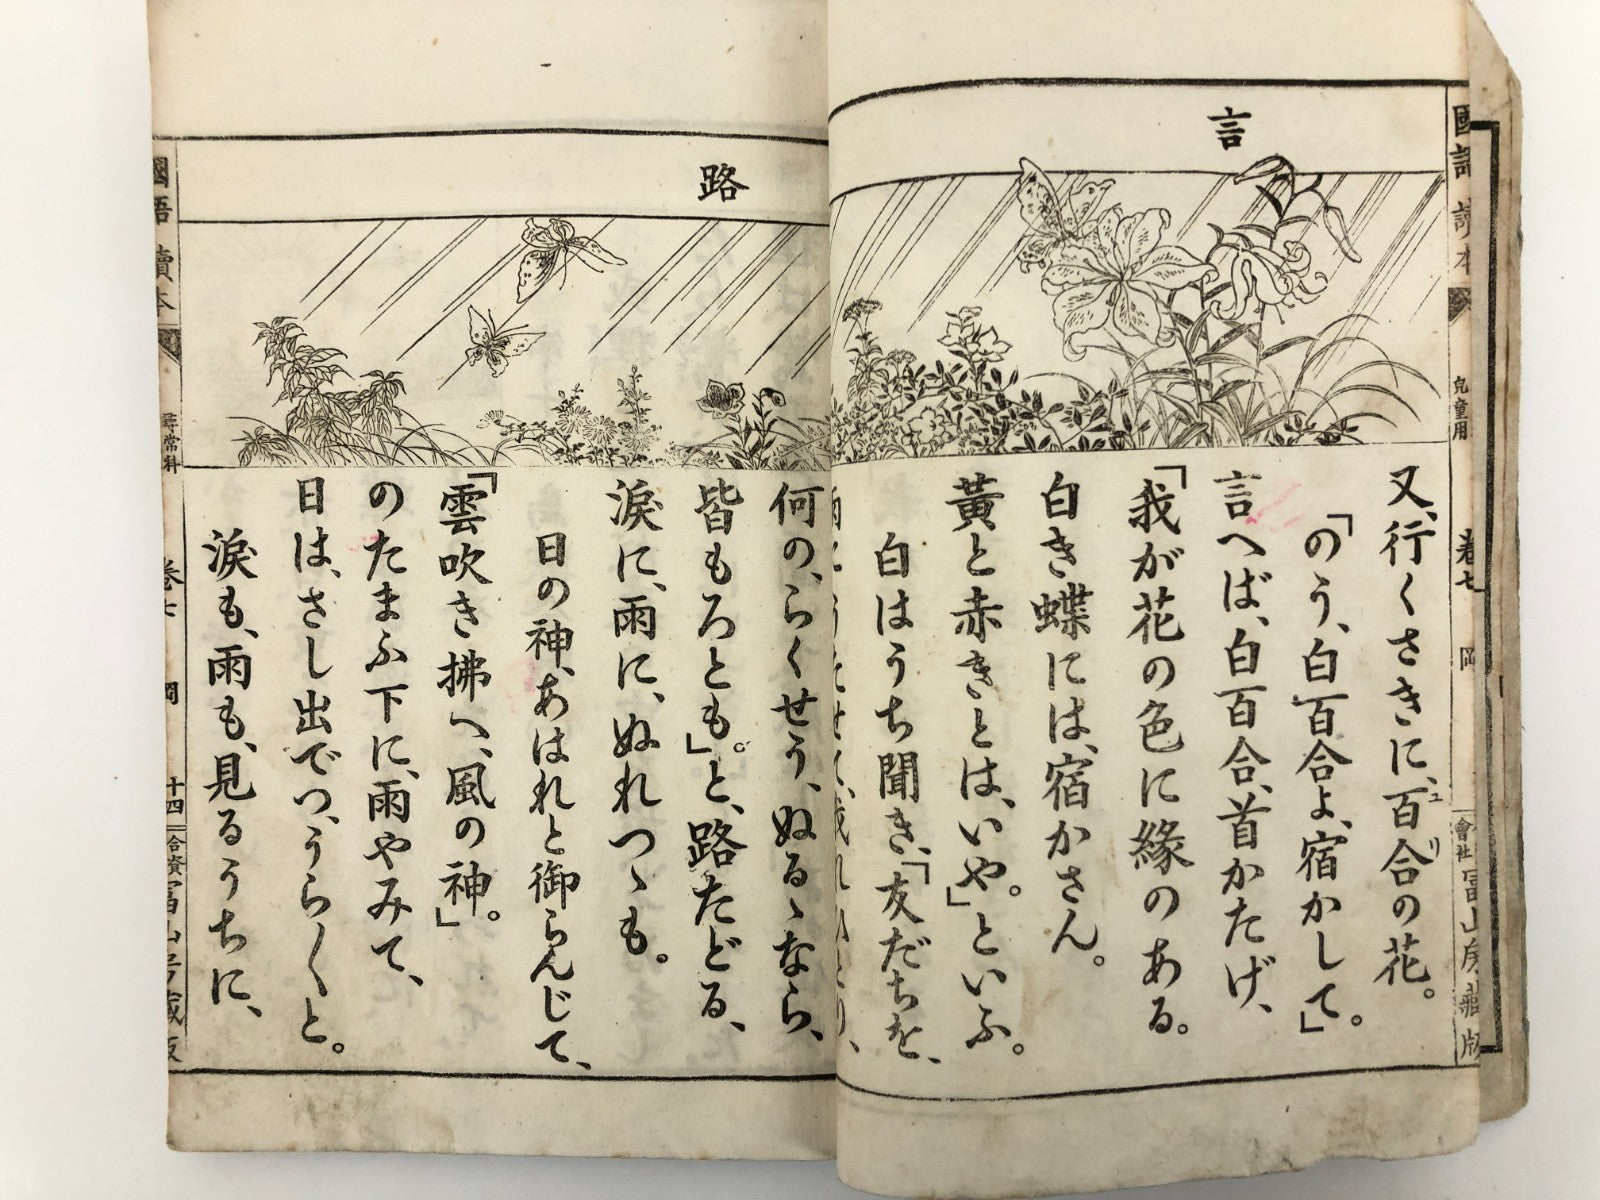 國語讀本
兒童用
卷七
會社
冨山房藏版
言
又、行くさきに、百合の花。
ユリ
「のう、白百合よ、宿かして。」
言へば、白百合、首かたげ、
「我が花の色に緣のある。
白き蝶には、宿かさん。
黃と赤きとは、いや。」といふ。
白はうち聞き、「友だちを、
路
何の、らくせう、ぬるゝなら、
皆もろとも。」と、路たどる、
淚に、雨に、ぬれつゝも。
日の神、あはれと御らんじて、
「雲吹き拂へ、風の神。」
のたまふ下に、雨やみて、
日は、さし出でつ、うら〳〵と。
淚も、雨も、見るうちに、
國語讀本
尋常科
卷七
十四
合資